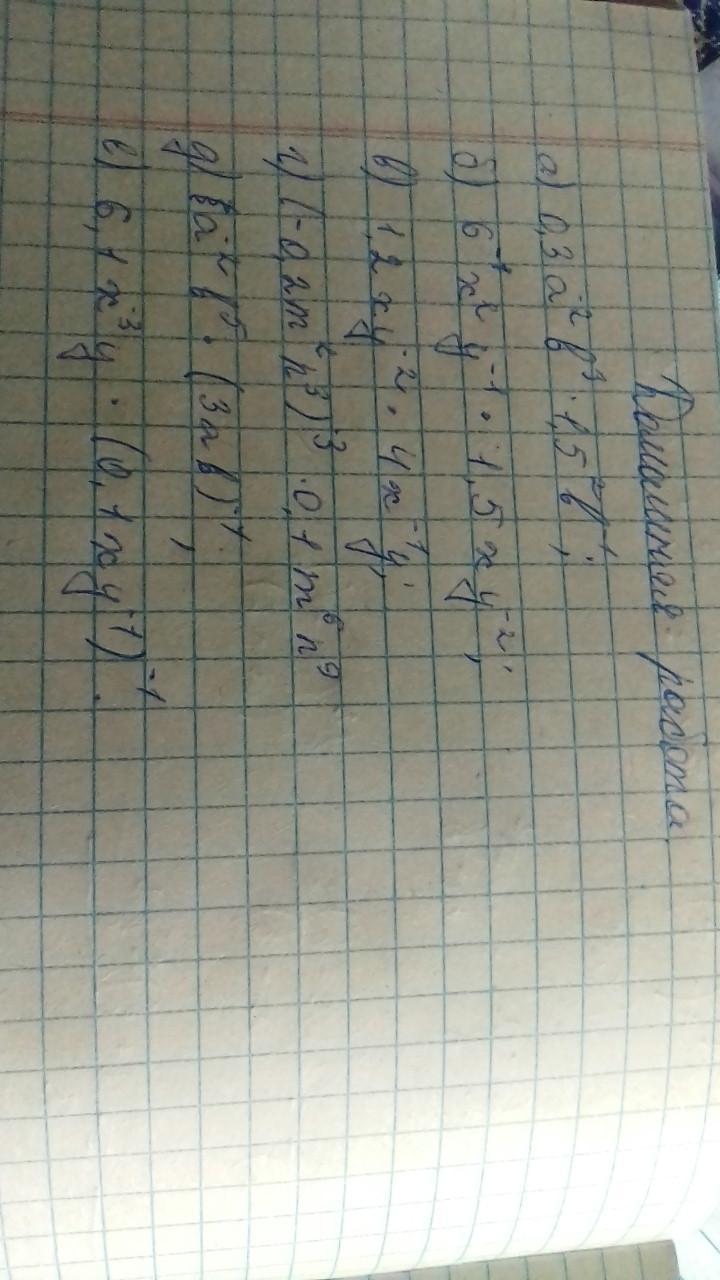 Домашняя работа
а) 0,3a⁻²b³ · 1,5²b⁻¹;
б) 6⁻¹x²y⁻¹ · 1,5xy⁻²;
в) 1,2xy⁻² · 4x⁻¹y;
г) (-0,2m²n³)⁻³ · 0,1m⁶n⁹
д) 8a⁻²b⁵ · (3ab)⁻¹;
е) 6,1x⁻³y · (0,1xy⁻¹)⁻¹.